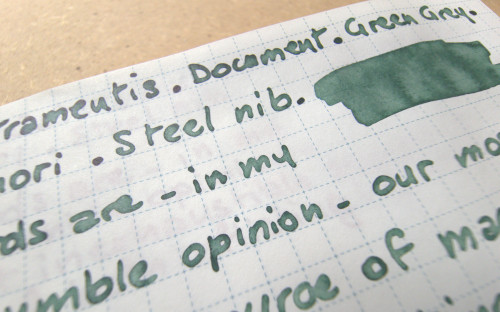 tramentis. Document. Green Grey.
nori. Steel nib.
ds are - in my
umble opinion - our mo
ource of ma